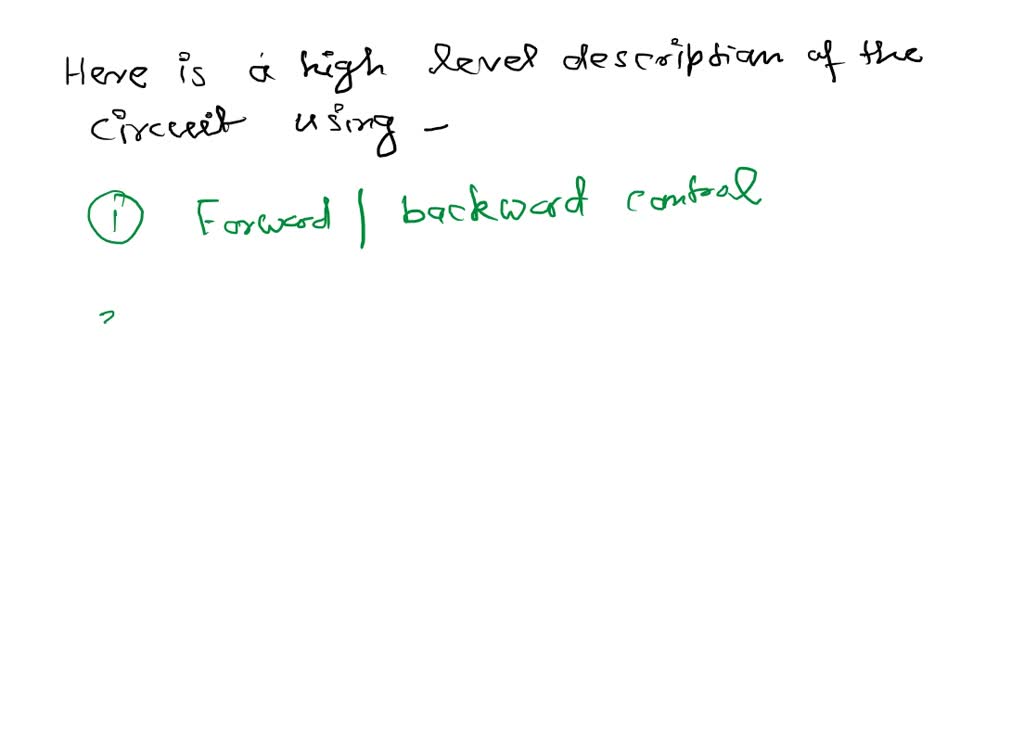 Here is a high level description of the
circuit using -
① Forward | backward control
2